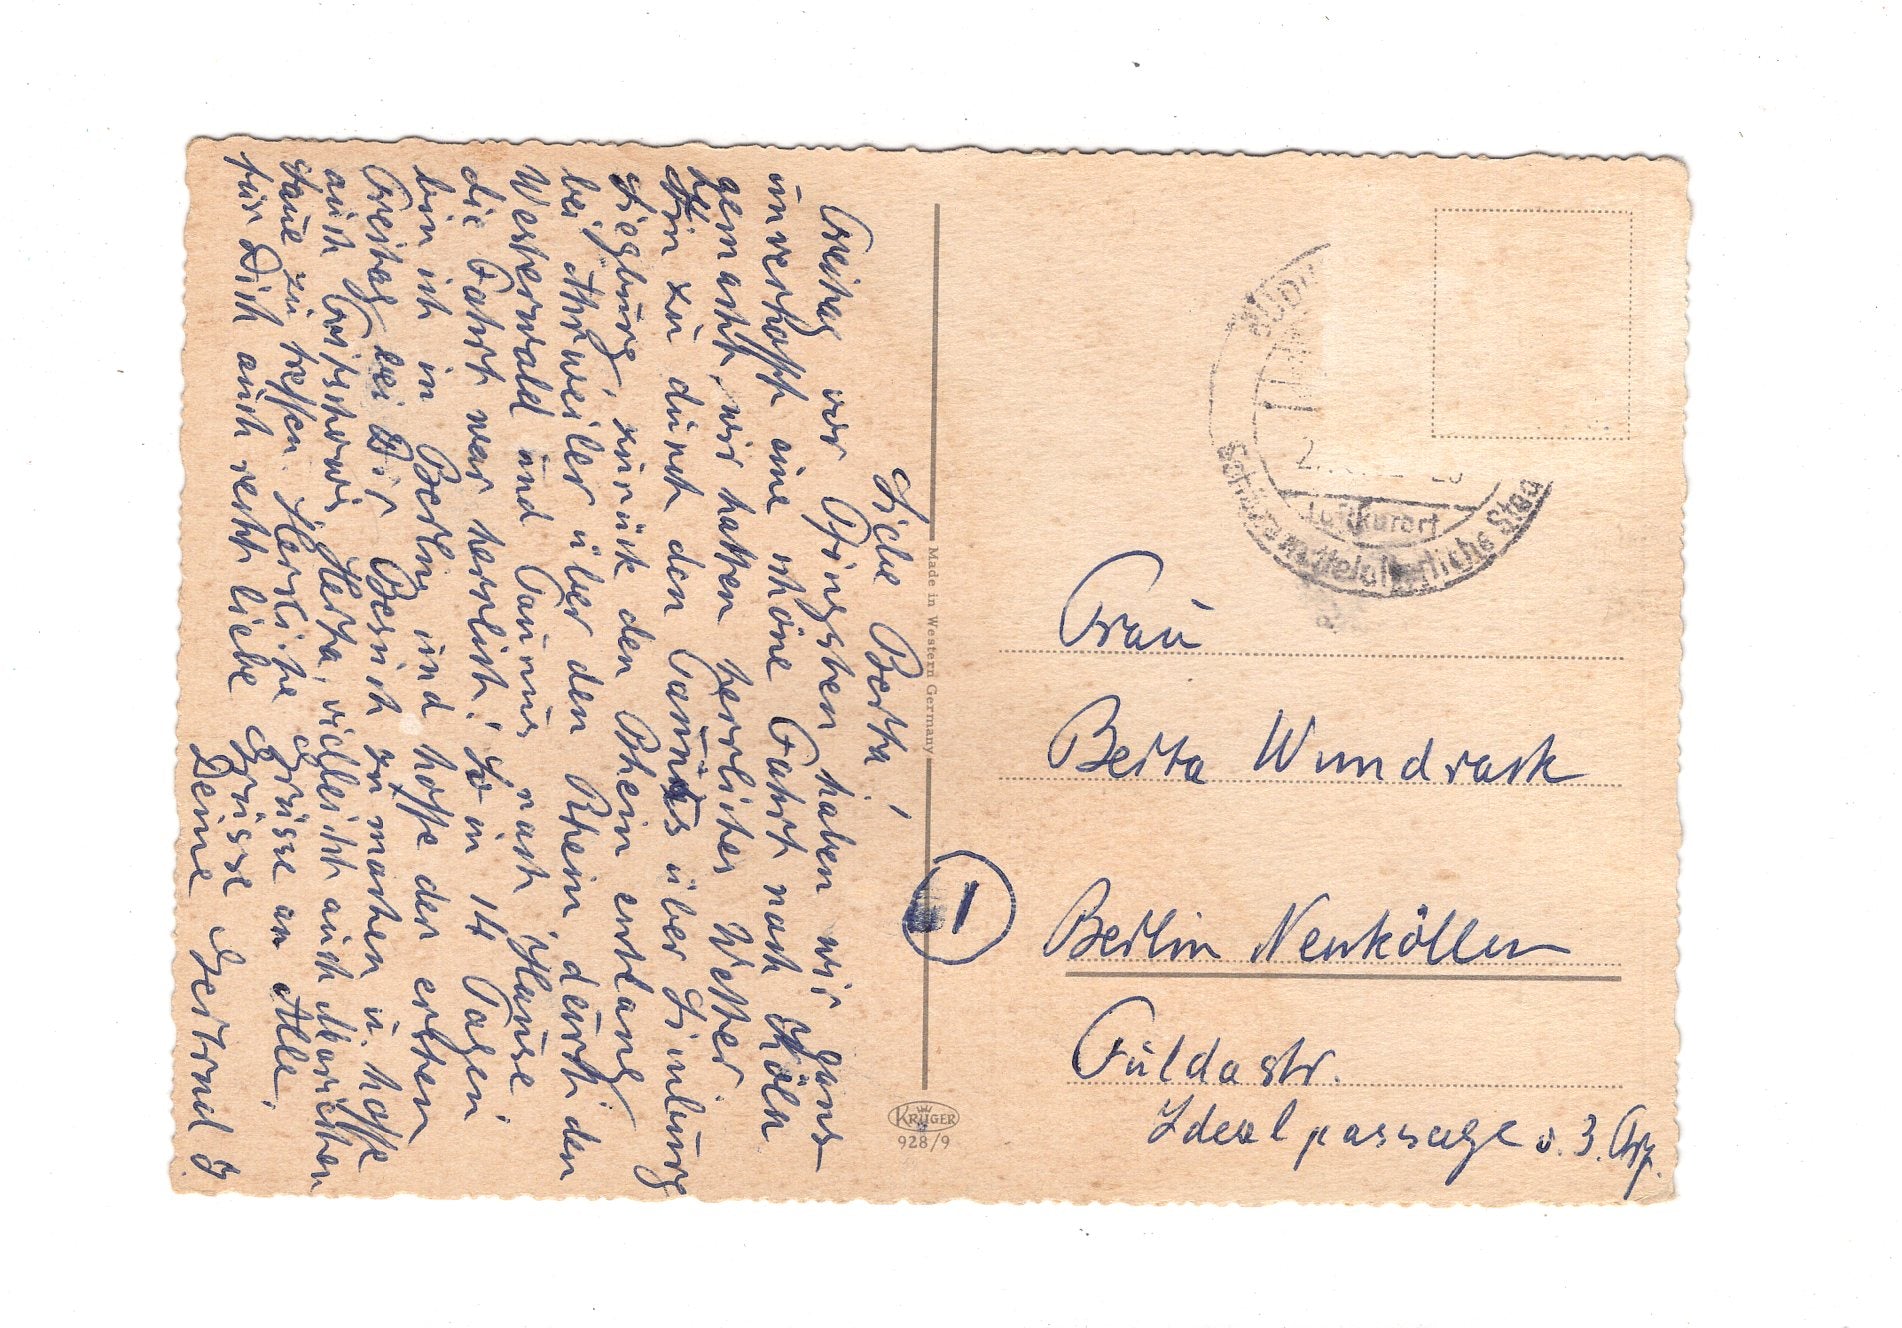 Liebe Berta!
Freitag vor Pfingsten haben wir ganz
unverhofft eine schöne Fahrt nach Köln
gemacht, wir hatten herrliches Wetter.
Hin zu durch den Taunus über Limburg
Siegburg zurück den Rhein entlang
bei Ahrweiler über den Rhein durch den
Westerwald und Taunus nach Hause
die Fahrt war herrlich! So in 14 Tagen
bin ich in Berlin und hoffe der ersten
Freitag bei Dir Besuch zu machen u. hoffe
auch Herta, vielleicht auch Mariechen
zu treffen. Herzliche Grüsse an Alle,
für Dich auch recht liebe Grüsse
Deine Gertrud
Made in Western Germany
KRÜGER
928/9
Luftkurort
Schöne mittelalterliche Stadt
Frau
Berta Wundrack
1
Berlin Neukölln
Fuldastr.
Idealpassage